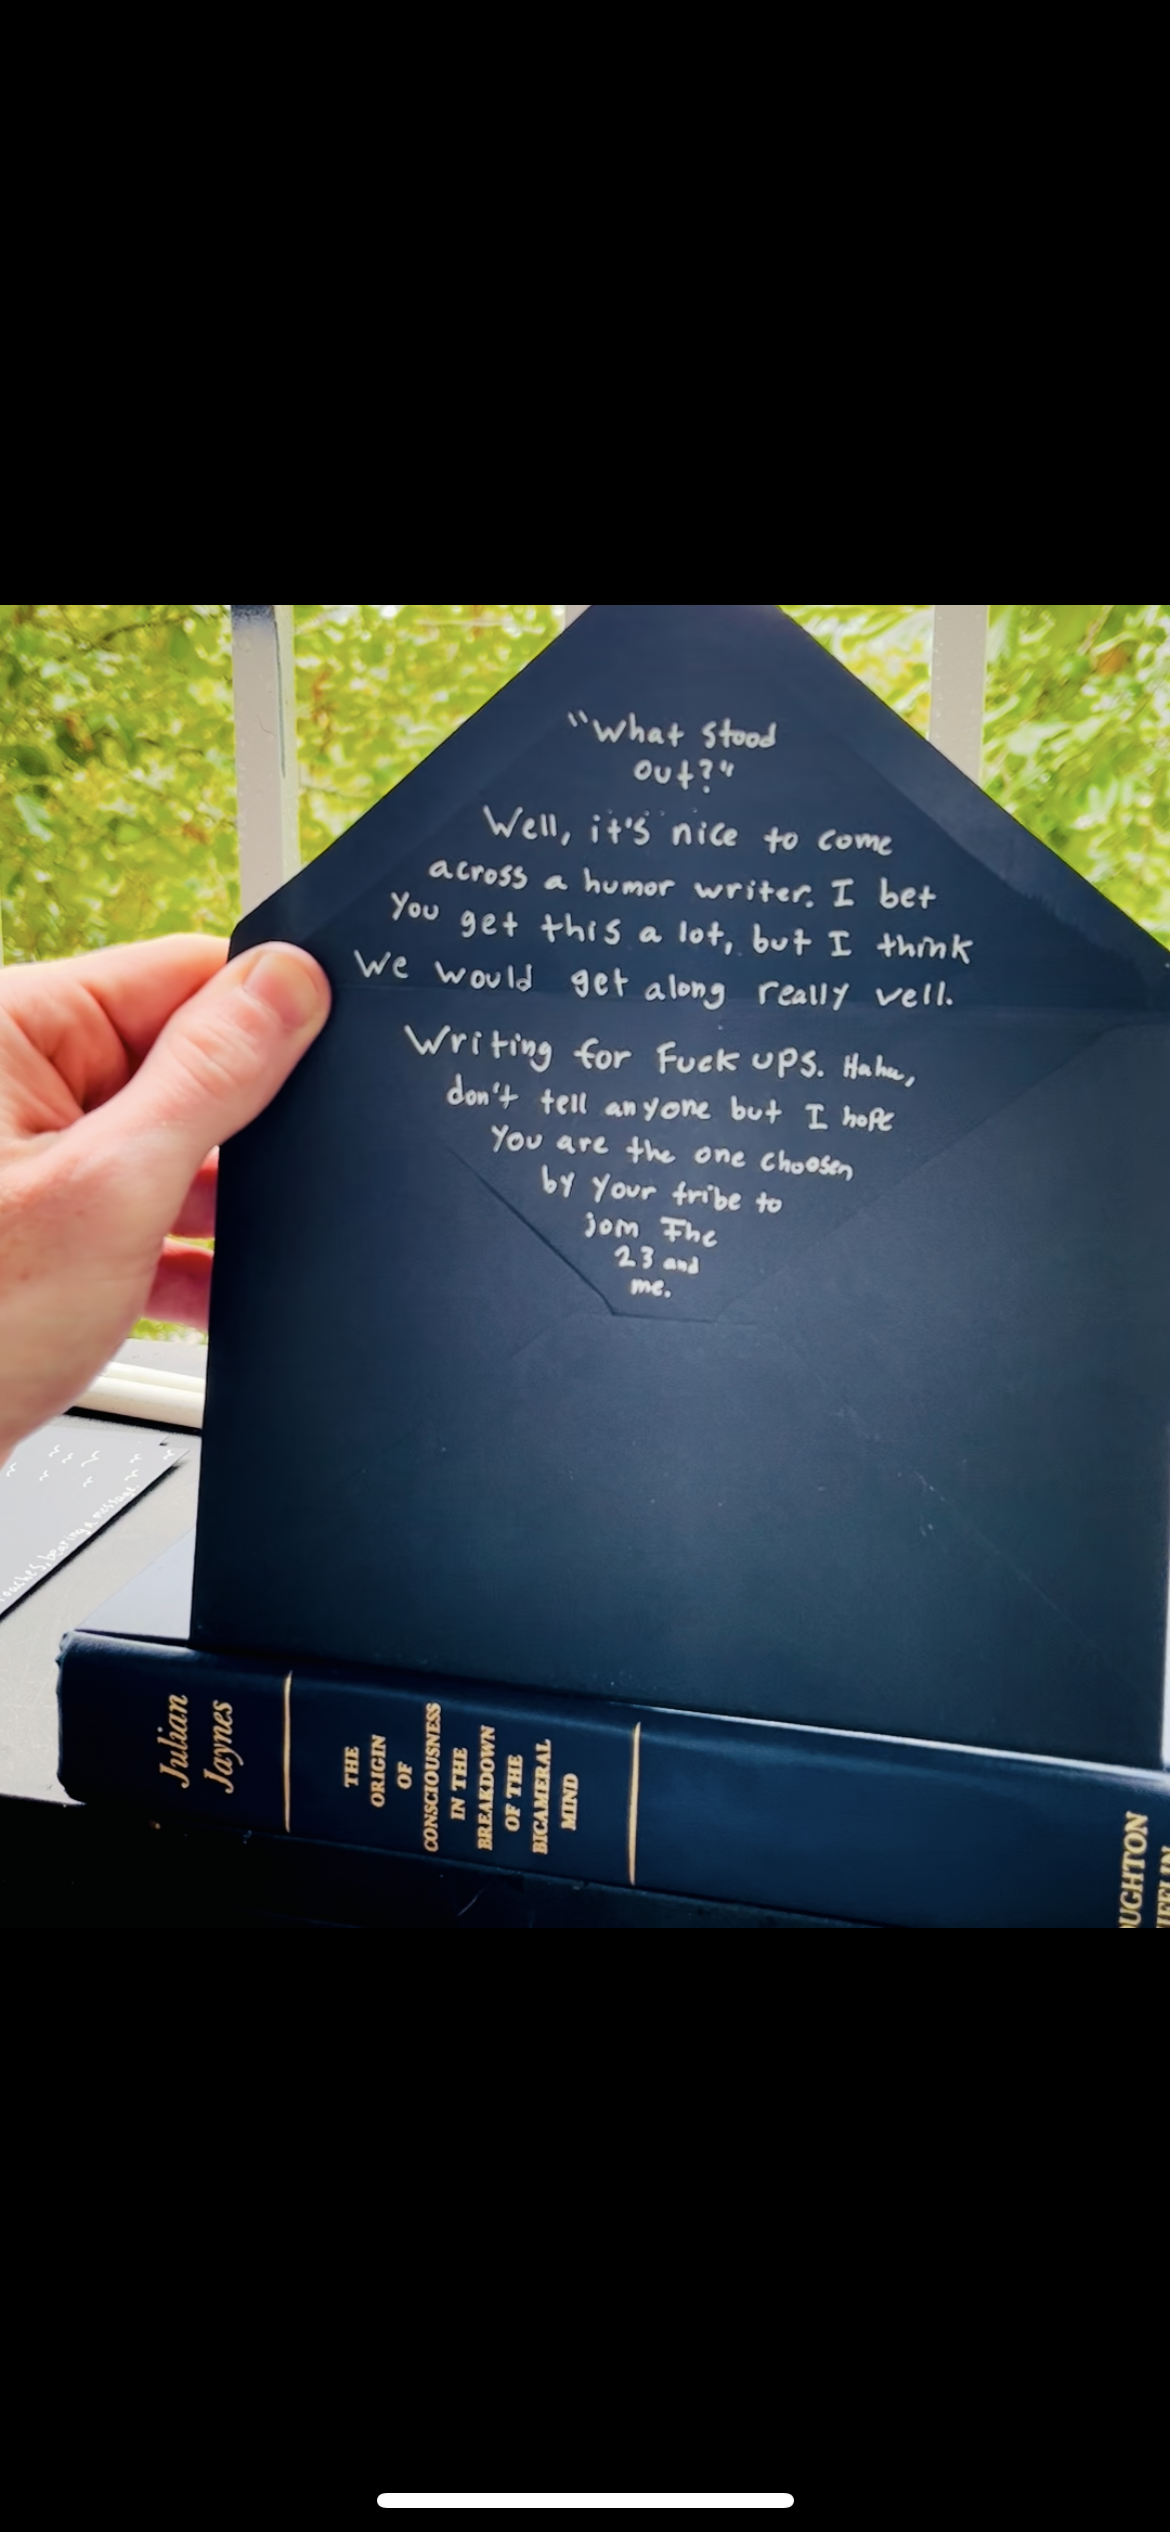 "What stood
out?"
Well, it's nice to come
across a humor writer. I bet
you get this a lot, but I think
we would get along really well.
Writing for Fuck ups. Haha,
don't tell anyone but I hope
you are the one choosen
by your tribe to
join The
23 and
me.
roaches, bearing a message
Julian
Jaynes
THE
ORIGIN
OF
CONSCIOUSNESS
IN THE
BREAKDOWN
OF THE
BICAMERAL
MIND
OUGHTON
IFFLIN